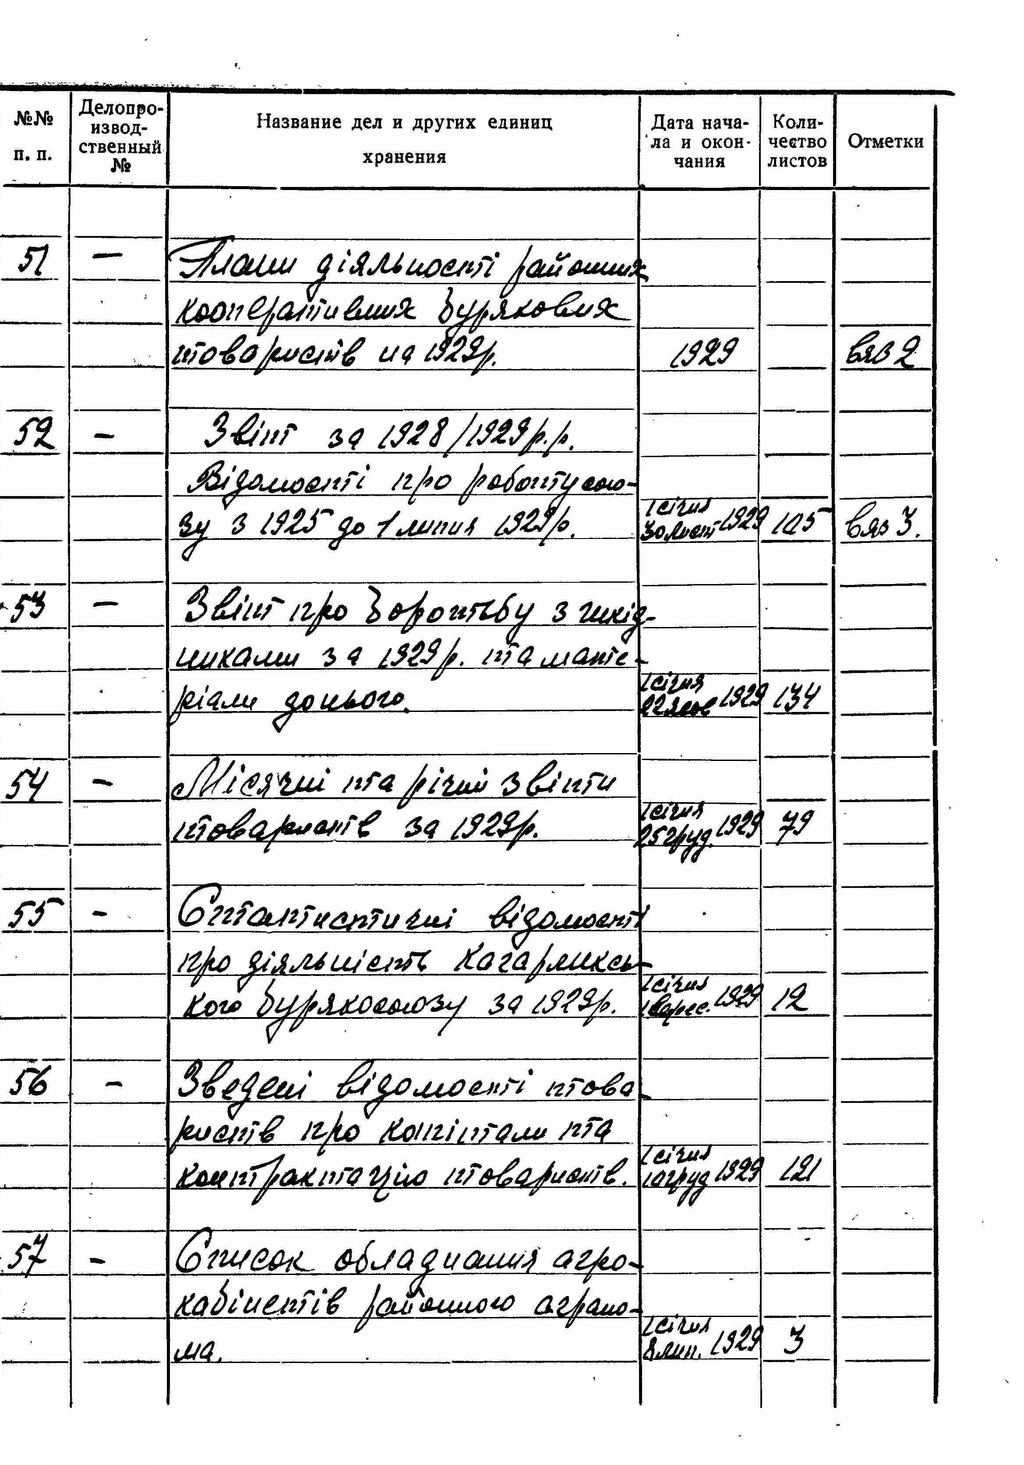 №№ п. п. Делопроизвод-ственный № Название дел и других единиц хранения Дата нача-ла и окон-чания Коли-чество листов Отметки
51 — Плани діяльності районних
кооперативних бурякових
товариств на 1929р. 1929 вяз 2
52 — Звіт за 1928/1929р.р.
Відомості про роботу сою-
зу з 1925 до 1 липня 1929р. 1 січня 30 лист 1929 105 вяз 3.
53 — Звіт про боротьбу з шкід-
никами за 1929р. та мате-
ріали до нього. 1 січня 22 жов 1929 134
54 — Місячні та річні звіти
товариств за 1929р. 1 січня 25 груд. 1929 79
55 — Статистичні відомості
про діяльність Кагарликсь-
кого бурякосоюзу за 1929р. 1 січня 1 верес. 1929 12
56 — Зведені відомості това
риств про капітали та
контрактацію товариств. 1 січня 10 груд 1929 121
57 — Список обладнання агро-
кабінетів районного агроно-
ма. 1 січня 8 лип. 1929 3